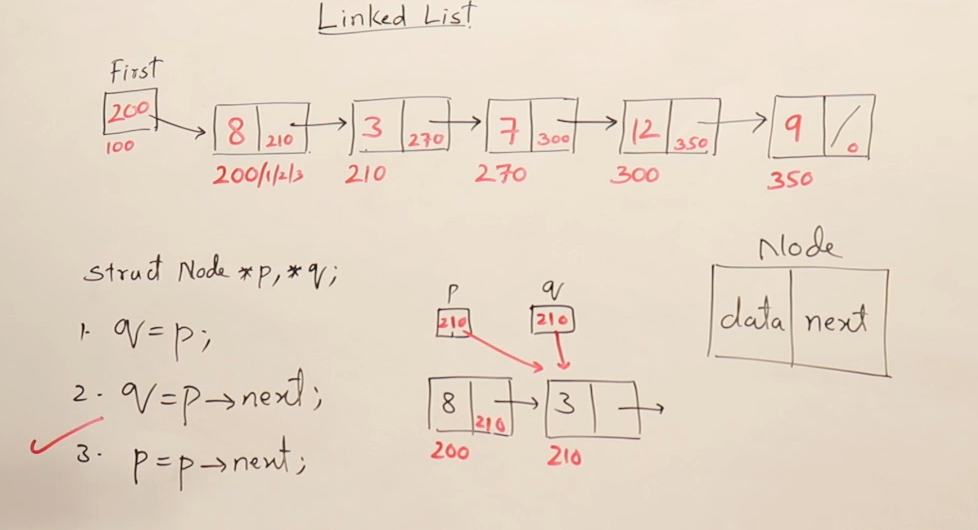 Linked List
First
200
100
8 210
200/1/2/3
3 270
210
7 300
270
12 350
300
9 /.
350
struct Node *p,*q;
1. q=p;
2. q=p→next;
3. p=p→next;
p
210
q
210
8 210
200
3
210
Node
data next